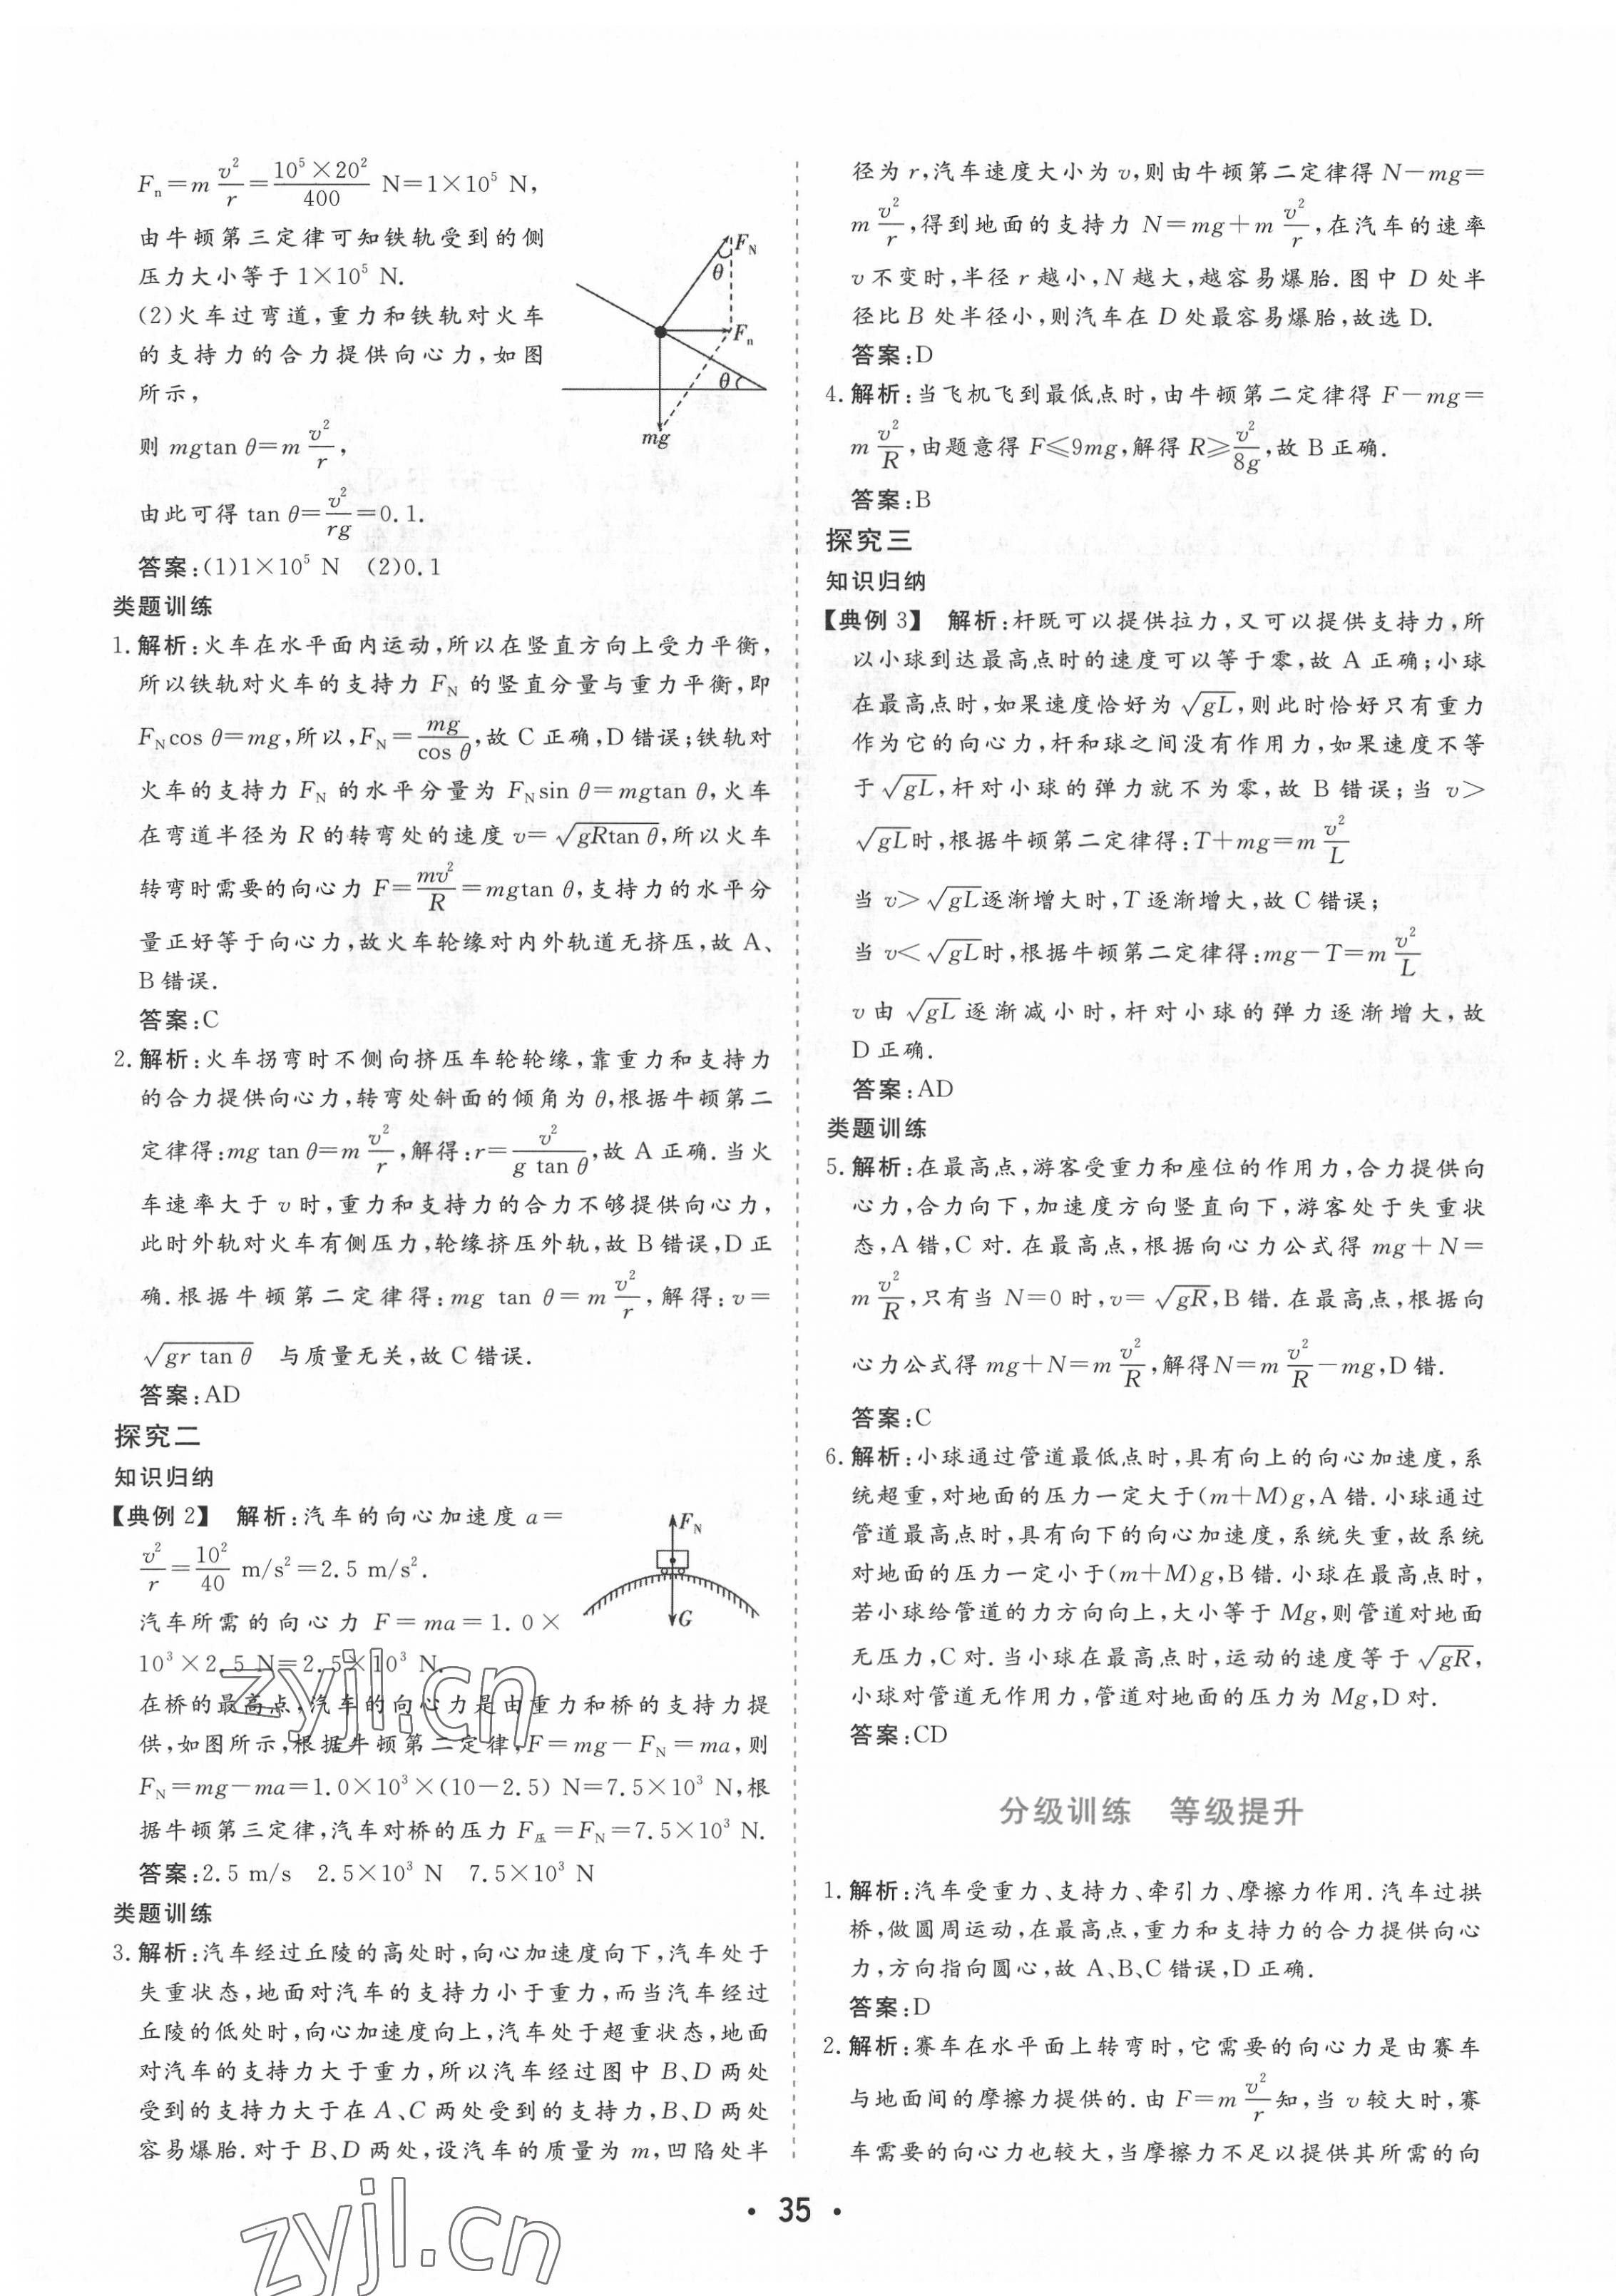 Fₙ=m v²/r=10⁵×20²/400 N=1×10⁵ N,
由牛顿第三定律可知铁轨受到的侧
压力大小等于 1×10⁵ N.
(2)火车过弯道,重力和铁轨对火车
的支持力的合力提供向心力,如图
所示,
则 mgtan θ=m v²/r,
由此可得 tan θ=v²/rg=0.1.
F_N
θ
Fₙ
θ
mg
答案:(1)1×10⁵ N (2)0.1
类题训练
1. 解析:火车在水平面内运动,所以在竖直方向上受力平衡,
所以铁轨对火车的支持力 F_N 的竖直分量与重力平衡,即
F_N cos θ=mg,所以,F_N=mg/cos θ,故 C 正确,D 错误;铁轨对
火车的支持力 F_N 的水平分量为 F_N sin θ=mgtan θ,火车
在弯道半径为 R 的转弯处的速度 v=√(gRtan θ),所以火车
转弯时需要的向心力 F=mv²/R=mgtan θ,支持力的水平分
量正好等于向心力,故火车轮缘对内外轨道无挤压,故 A、
B 错误.
答案:C
2. 解析:火车拐弯时不侧向挤压车轮轮缘,靠重力和支持力
的合力提供向心力,转弯处斜面的倾角为 θ,根据牛顿第二
定律得:mg tan θ=m v²/r,解得:r=v²/(g tan θ),故 A 正确.当火
车速率大于 v 时,重力和支持力的合力不够提供向心力,
此时外轨对火车有侧压力,轮缘挤压外轨,故 B 错误,D 正
确.根据牛顿第二定律得:mg tan θ=m v²/r,解得:v=
√(gr tan θ) 与质量无关,故 C 错误.
答案:AD
探究二
知识归纳
【典例 2】 解析:汽车的向心加速度 a=
v²/r=10²/40 m/s²=2.5 m/s².
汽车所需的向心力 F=ma=1.0×
10³×2.5 N=2.5×10³ N.
F_N
G
在桥的最高点,汽车的向心力是由重力和桥的支持力提
供,如图所示,根据牛顿第二定律,F=mg-F_N=ma,则
F_N=mg-ma=1.0×10³×(10-2.5) N=7.5×10³ N,根
据牛顿第三定律,汽车对桥的压力 F压=F_N=7.5×10³ N.
答案:2.5 m/s 2.5×10³ N 7.5×10³ N
类题训练
3. 解析:汽车经过丘陵的高处时,向心加速度向下,汽车处于
失重状态,地面对汽车的支持力小于重力,而当汽车经过
丘陵的低处时,向心加速度向上,汽车处于超重状态,地面
对汽车的支持力大于重力,所以汽车经过图中 B、D 两处
受到的支持力大于在 A、C 两处受到的支持力,B、D 两处
容易爆胎.对于 B、D 两处,设汽车的质量为 m,凹陷处半
径为 r,汽车速度大小为 v,则由牛顿第二定律得 N-mg=
m v²/r,得到地面的支持力 N=mg+m v²/r,在汽车的速率
v 不变时,半径 r 越小,N 越大,越容易爆胎.图中 D 处半
径比 B 处半径小,则汽车在 D 处最容易爆胎,故选 D.
答案:D
4. 解析:当飞机飞到最低点时,由牛顿第二定律得 F-mg=
m v²/R,由题意得 F≤9mg,解得 R≥v²/8g,故 B 正确.
答案:B
探究三
知识归纳
【典例 3】 解析:杆既可以提供拉力,又可以提供支持力,所
以小球到达最高点时的速度可以等于零,故 A 正确;小球
在最高点时,如果速度恰好为 √(gL),则此时恰好只有重力
作为它的向心力,杆和球之间没有作用力,如果速度不等
于 √(gL),杆对小球的弹力就不为零,故 B 错误;当 v>
√(gL)时,根据牛顿第二定律得:T+mg=m v²/L
当 v>√(gL)逐渐增大时,T 逐渐增大,故 C 错误;
当 v<√(gL)时,根据牛顿第二定律得:mg-T=m v²/L
v 由 √(gL) 逐渐减小时,杆对小球的弹力逐渐增大,故
D 正确.
答案:AD
类题训练
5. 解析:在最高点,游客受重力和座位的作用力,合力提供向
心力,合力向下,加速度方向竖直向下,游客处于失重状
态,A 错,C 对.在最高点,根据向心力公式得 mg+N=
m v²/R,只有当 N=0 时,v=√(gR),B 错.在最高点,根据向
心力公式得 mg+N=m v²/R,解得N=m v²/R-mg,D 错.
答案:C
6. 解析:小球通过管道最低点时,具有向上的向心加速度,系
统超重,对地面的压力一定大于(m+M)g,A 错.小球通过
管道最高点时,具有向下的向心加速度,系统失重,故系统
对地面的压力一定小于(m+M)g,B 错.小球在最高点时,
若小球给管道的力方向向上,大小等于 Mg,则管道对地面
无压力,C 对.当小球在最高点时,运动的速度等于 √(gR),
小球对管道无作用力,管道对地面的压力为 Mg,D 对.
答案:CD
分级训练 等级提升
1. 解析:汽车受重力、支持力、牵引力、摩擦力作用.汽车过拱
桥,做圆周运动,在最高点,重力和支持力的合力提供向心
力,方向指向圆心,故 A、B、C 错误,D 正确.
答案:D
2. 解析:赛车在水平面上转弯时,它需要的向心力是由赛车
与地面间的摩擦力提供的.由 F=m v²/r 知,当 v 较大时,赛
车需要的向心力也较大,当摩擦力不足以提供其所需的向
· 35 ·
zyjl.cn
zyjl.cn